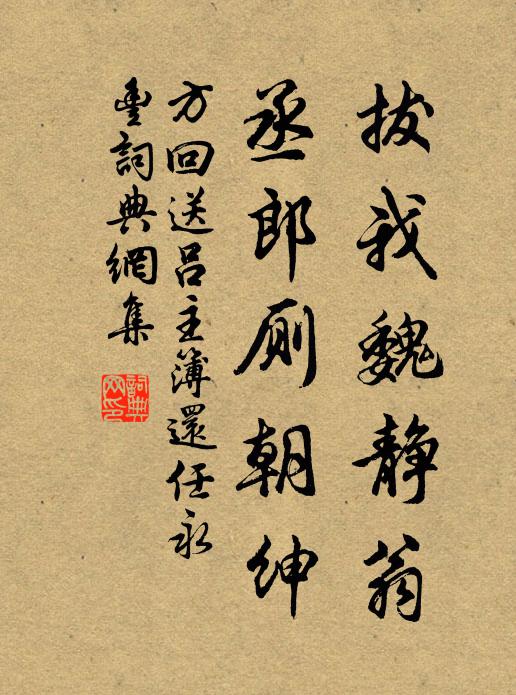 拔我魏静翁
丞郎厕朝绅
方回送吕主簿還任永
豊詞典網集
詞典網印